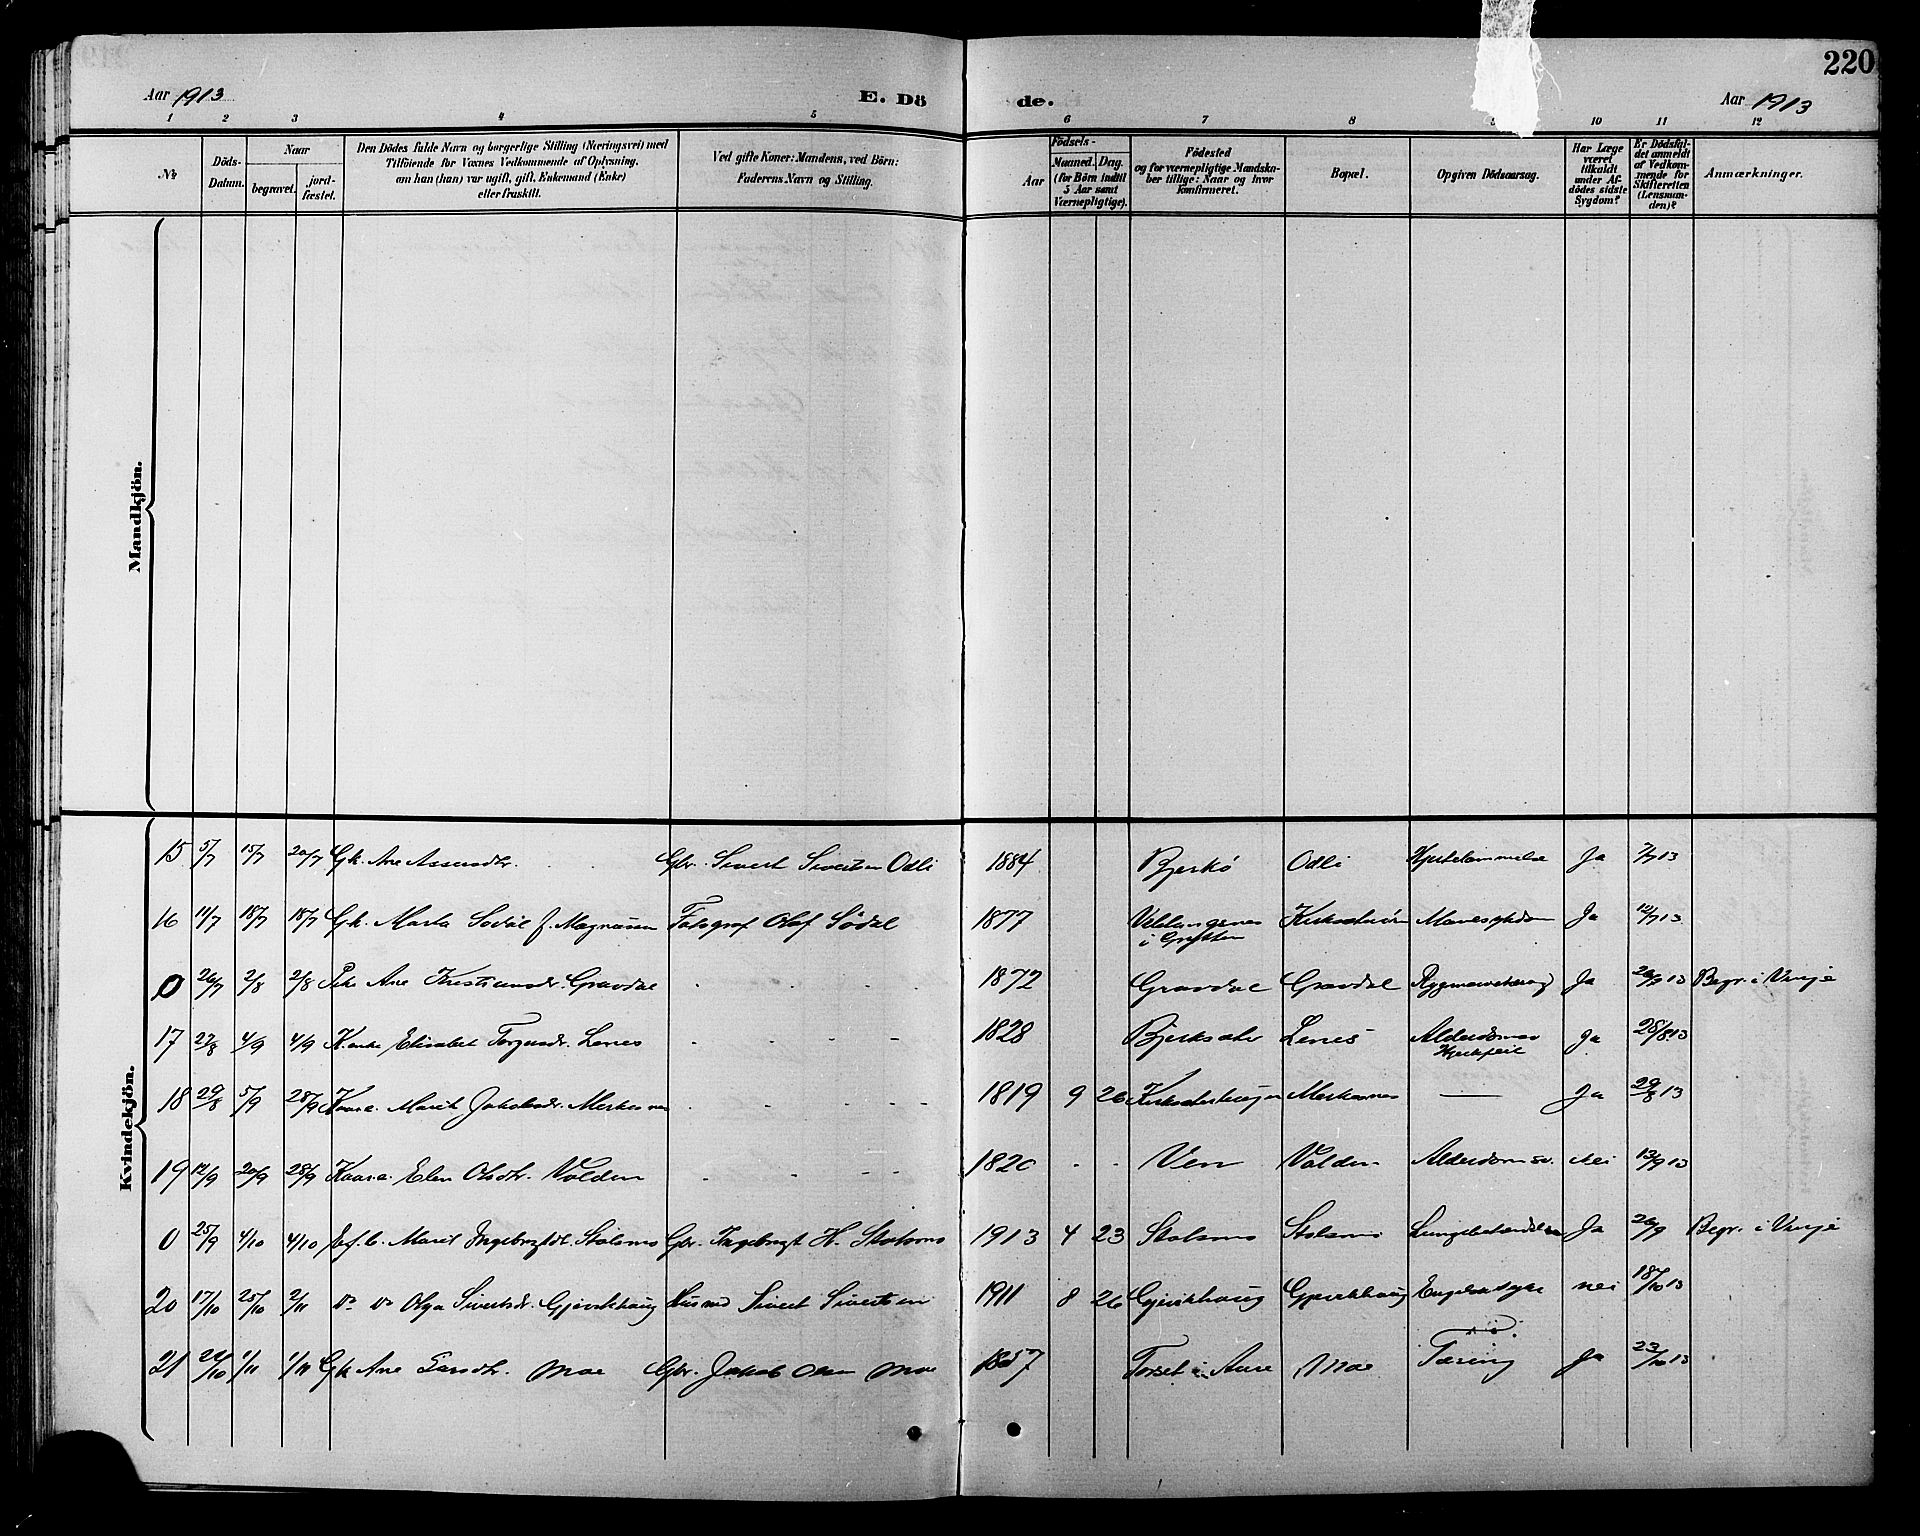 220
Aar 1913
E. Dö
de.
Aar 1913
1 2 3 4 5 6 7 8 9 10 11 12
No
Döds-Datum.
Naar
begravet.
jord-fæstet.
Den Dödes fulde Navn og borgerlige Stilling (Næringsvei) med
Tilföiende for Voxnes Vedkommende af Oplysning,
om han (hun) var ugift, gift, Enkemand (Enke)
eller fraskilt.
Ved gifte Koner: Mandens, ved Börn:
Faderens Navn og Stilling.
Födsels-
Aar
Maaned.
Dag.
(for Börn indtil
5 Aar samt
Værnepligtige).
Födested
og for værnepligtige Mandska-
ber tillige: Naar og hvor
konfirmeret.
Bopæl.
Opgiven Dödsaarsag.
Har Læge
været
tilkaldt
under Af-
dödes sidste
Sygdom?
Er Dödsfal-
det anmeldt
af Vedkom-
mende for
Skifteretten
(Lensman-
den)?
Anmærkninger.
Mandkjön.
Kvindekjön.
15 5/7 15/7 20/7 Gk. Ane Assensdtr. Gbr. Sivert Sivertsen Odli 1884 Bjerkö Odli Hjertelammelse Ja 7/7 13
16 11/7 18/7 18/7 Gk. Marta Södal f. Magnussen Fotograf Olaf Södal 1877 i Grytten Ja 12/7 13
0 26/7 2/8 2/8 Pike Ane Kristiansdr. Gravdal 1872 Gravdal Gravdal Ja 13 Begr. i Vinje
17 27/8 4/9 4/9 K. enke Elisabet Lenes 1828 Bjerksæter Lenes Alderdomssv. Ja 28/8 13
18 29/8 5/9 28/9 Kaare. Marit Jakobsdr. Merkesnes 1819 9 26 Merkesnes — Ja 29/8 13
19 12/9 20/9 28/9 Kaare. Elen Olsdtr. Volden 1820 Ven Volden Alderdomssv. Nei 13/9 13
0 25/9 4/10 4/10 Marit Ingebrigtdt. Stolsnes Gbr. Ingebrigt H. Stolsnes 1913 4 23 Stolsnes Stolsnes Lungebetændelse Ja 26/9 Begr. i Vinje
20 17/10 25/10 2/11 do do Olga Sivertsdr. Gjevikhaug Husmd Sivert Sivertsen 1911 8 26 Gjevikhaug Gjevikhaug Engelsk syke nei 18/10 13
21 1/11 1/11 Gk Ane Larsdtr. Moe Gbr. Jakob Olsen Moe 1857 Torset i Aure Moe Tæring Ja 23/10 13